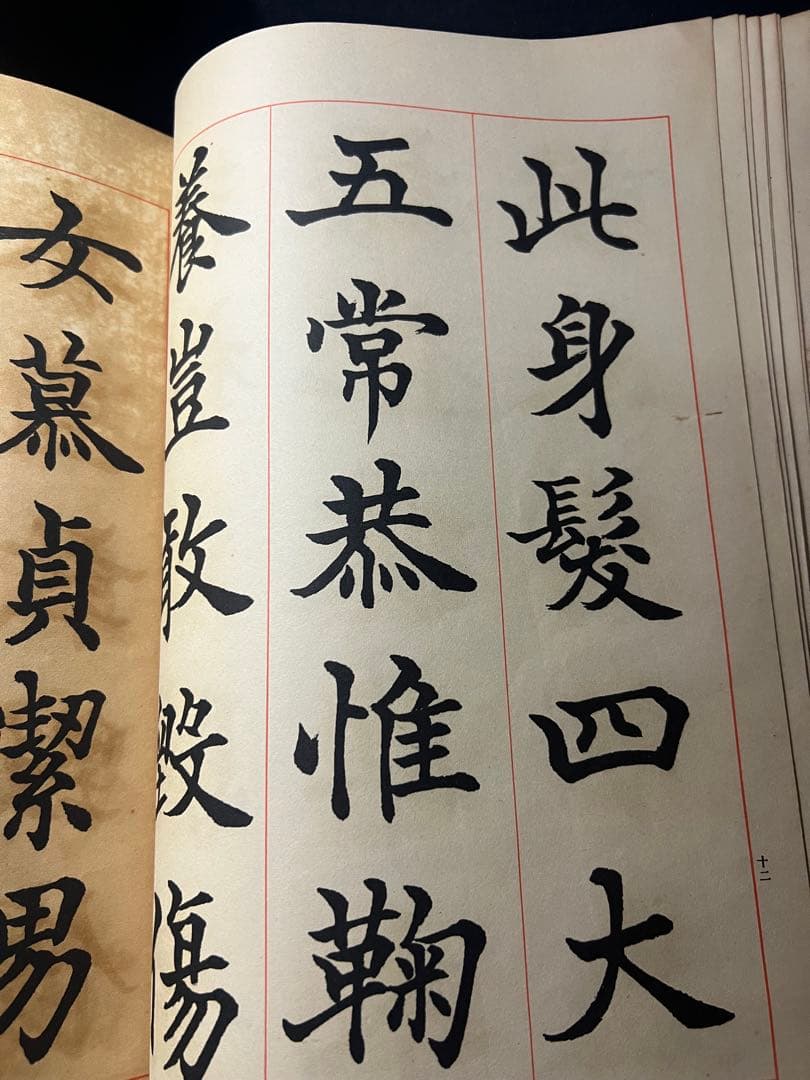 此身髮四大
五常恭惟鞠
養豈敢毀傷
女慕貞潔男
十二